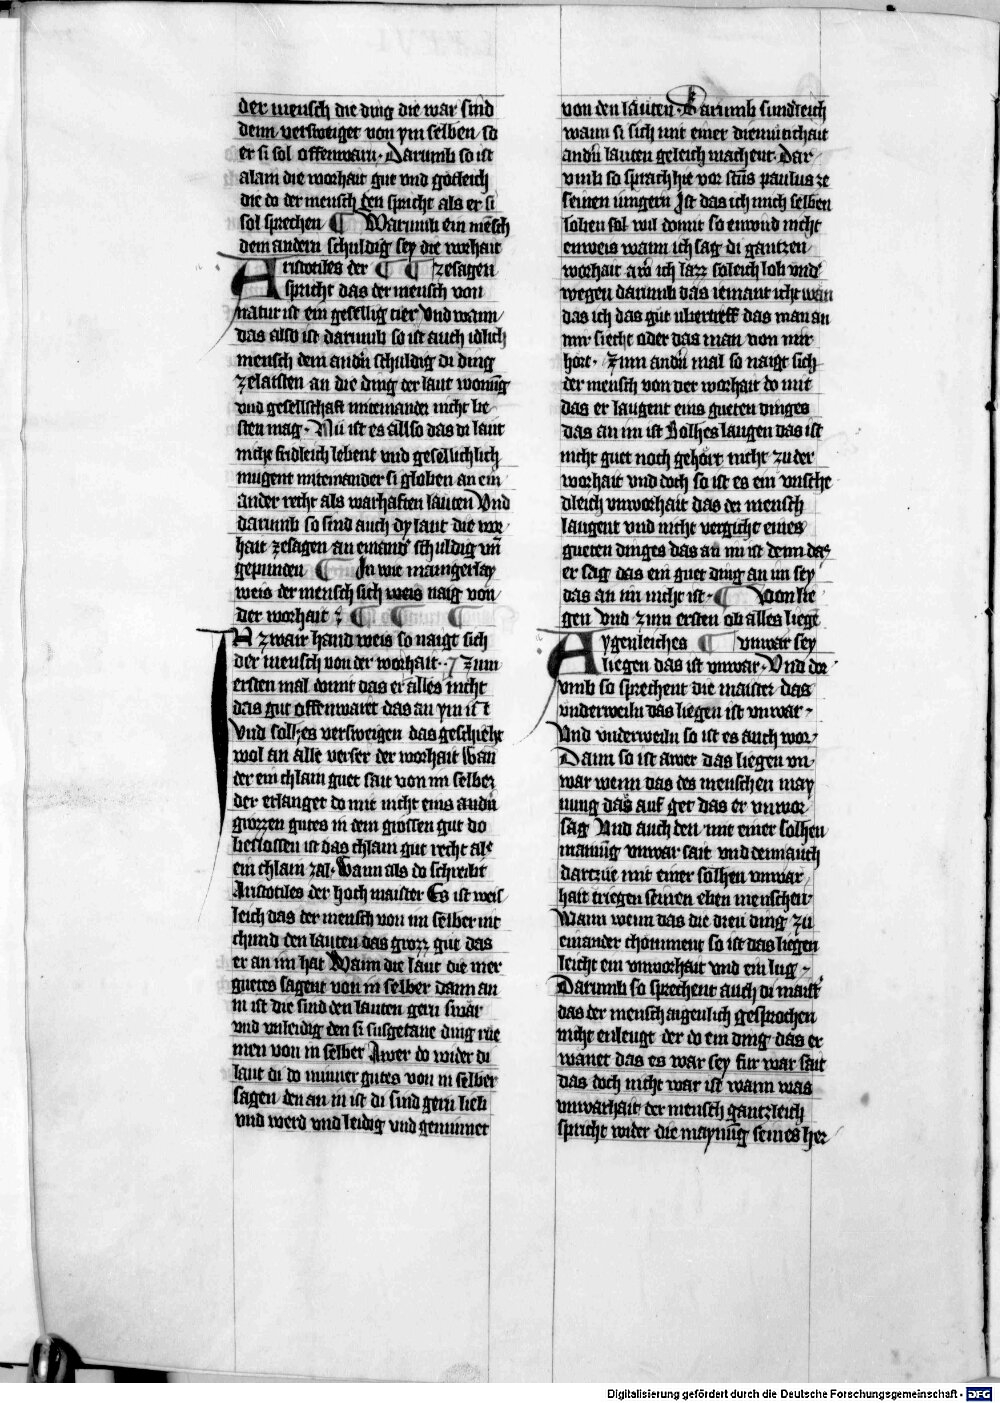 der mensch die ding die war sind
denn versweiget von ym selben so
er si sol offenwarn · Darumb so ist
alain die worhait gut vnd gotleich
die do der mensch den spricht als er si
sol sprechen ¶ Warumb ein mensch
dem andern schuldig sey die worhait
Aristotiles der ¶ ¶ zesagen
spricht das der mensch von
natur ist ein gesellig tier Vnd wann
das also ist darumb so ist auch idlich
mensch dem andn schuldig di ding
zelaisten an die ding der laut wonug
vnd gesellschaft miteinander nicht be
sten mag · Nu ist es allso das di laut
nicht fridleich lebent vnd gesellichlich
mugent miteinander si globen an ein
ander recht als warhaften lauten Vnd
darumb so sind auch dy laut die wor
hait zesagen an einand schuldig vn
gepunten ¶ In wie maingerlay
weis der mensch sich weis naig von
der worhait ¶ ¶ ¶
In zwair hand weis so naigt sich
der mensch von der worhait · Zum
ersten mal domit das er alles nicht
das gut offenwaret das an ym ist
Vnd solhes versweigen das geschieht
wol an alle verser der worhait Wan
der ein chlain guet sait von im selber
der erlanget do mit nicht eins andn
grozzen gutes in dem grossen gut do
beslossen ist das chlain gut recht als
ein chlain zal · Wann als do schreibt
Aristotiles der hoch maister Es ist weis
leich das der mensch von im selber nit
chund den lauten das grozz gut das
er an im hat Wann die laut die mer
guetes sagent von in selber dann an
in ist die sind den lauten gern swar
vnd vnleidig den si susgetane ding rue
men von in selber Awer do wider di
laut di do minner gutes von in selber
sagen den an in ist di sind gern lieb
vnd werd vnd leidig vnd geminnet
von den lauten · Darumb sundleich
wann si sich mit einer diemutichait
andn lauten geleich machent · Dar
vmb so sprach hie vor sans paulus ze
seinen iungern Ist das ich mich selben
loben sol wil domit so enwird nicht
enweis wann ich sag di gantzen
worhait aw ich lazz soleich lob vnd
wegen darumb das iemant icht wan
das ich das gut vbertreff das man an
mir siecht oder das man von mir
hort · Zum andn mal so naigt sich
der mensch von der worhait do mit
das er laugent eins gueten dinges
das an im ist Solhes laugen das ist
nicht guet noch gehort nicht zu der
worhait vnd doch so ist es ein vnsche
dleich vnworhait das der mensch
laugent vnd nicht vergicht eines
gueten dinges das an im ist denn das
er sag das ein guet ding an im sey
das an im nicht ist · ¶ Von lie
gen Vnd zum ersten ob alles liege
Aygenleiches ¶ vnwar sey
liegen das ist vnwar · Vnd dar
vmb so sprechent die maister das
vnderweiln das liegen ist vnwar ·
Vnd vnderweiln so ist es auch wor ·
Dann so ist awer das liegen vn
war wenn das des menschen may
nung das auf get das er vnwor
sag Vnd auch den mit einer solhen
mainug vnwar sait vnd dennauch
dartzue mit einer solhen vnwar
hait triegen seinen eben menschen
Wann wenn das die dreu ding zu
einander chomment so ist das liegen
leicht ein vnworhait vnd ein lug ·
Darumb so sprechent auch di maist
das der mensch aigenlich gesprochen
nicht enleugt der do ein ding das er
wanet das es war sey fur war sait
das doch nicht war ist wann was
vnwarhait der mensch gantzleich
spricht wider die maynug seines her
Digitalisierung gefördert durch die Deutsche Forschungsgemeinschaft - DFG